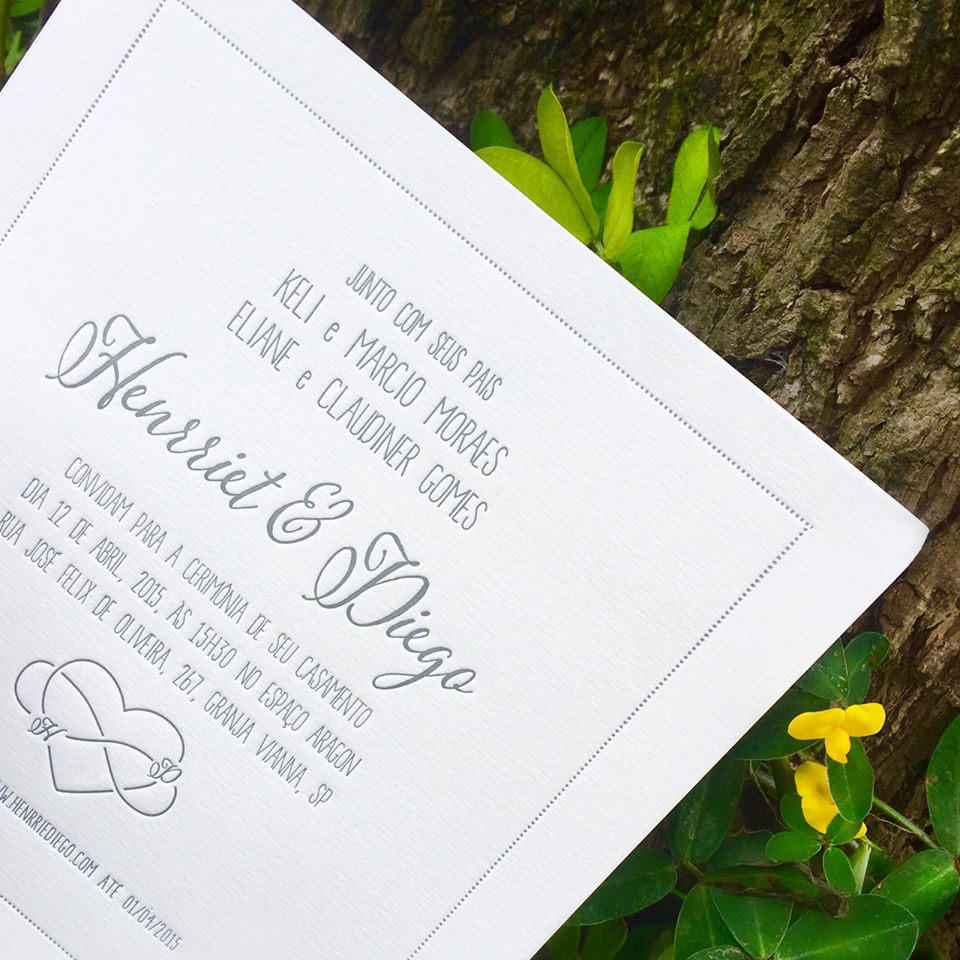 JUNTO COM SEUS PAIS
KELI e MARCIO MORAES
ELIANE e CLAUDINER GOMES
Henrriet & Diego
CONVIDAM PARA A CERIMÔNIA DE SEU CASAMENTO
DIA 12 DE ABRIL, 2015, AS 15H30 NO ESPAÇO ARAGON
RUA JOSÉ FELIX DE OLIVEIRA, 267, GRANJA VIANNA, SP
H D
WWW.HENRRIEDIEGO.COM ATÉ 01/04/2015